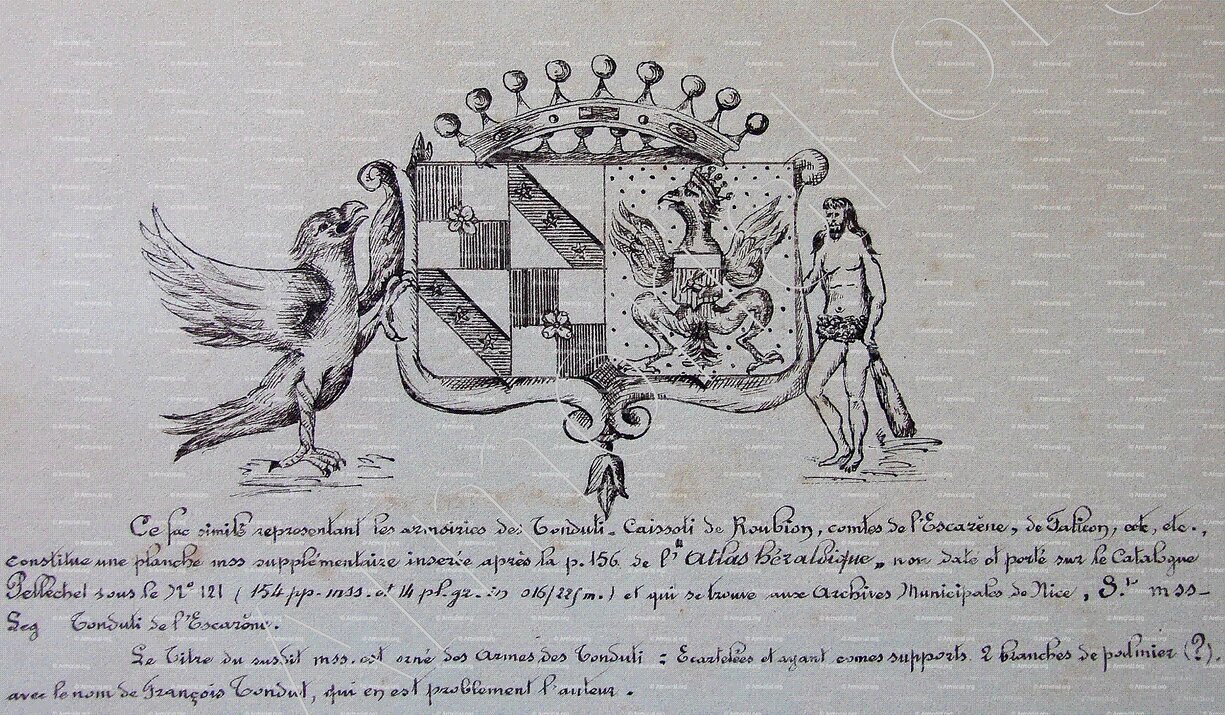 Ce fac simile représentant les armoiries des Tonduti-Caissoti de Roubion, comtes de l'Escarène, de Falicon, etc, etc.,
constitue une planche mss supplémentaire insérée après la p. 156 de l'"Atlas héraldique" non daté et porté sur le Catalogue
Pellechet sous le N° 121 (154 pp. mss. et 14 pl. gr. in 016/225 m.) et qui se trouve aux Archives Municipales de Nice, S.te mss-
Leg Tonduti de l'Escarène.
Le Titre du susdit mss. est orné des Armes des Tonduti : Ecartelées et ayant comes supports 2 branches de (?).
avec le nom de François Tondut, qui en est problement l'auteur.
© Armorial.org